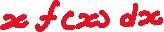 x f(x) dx